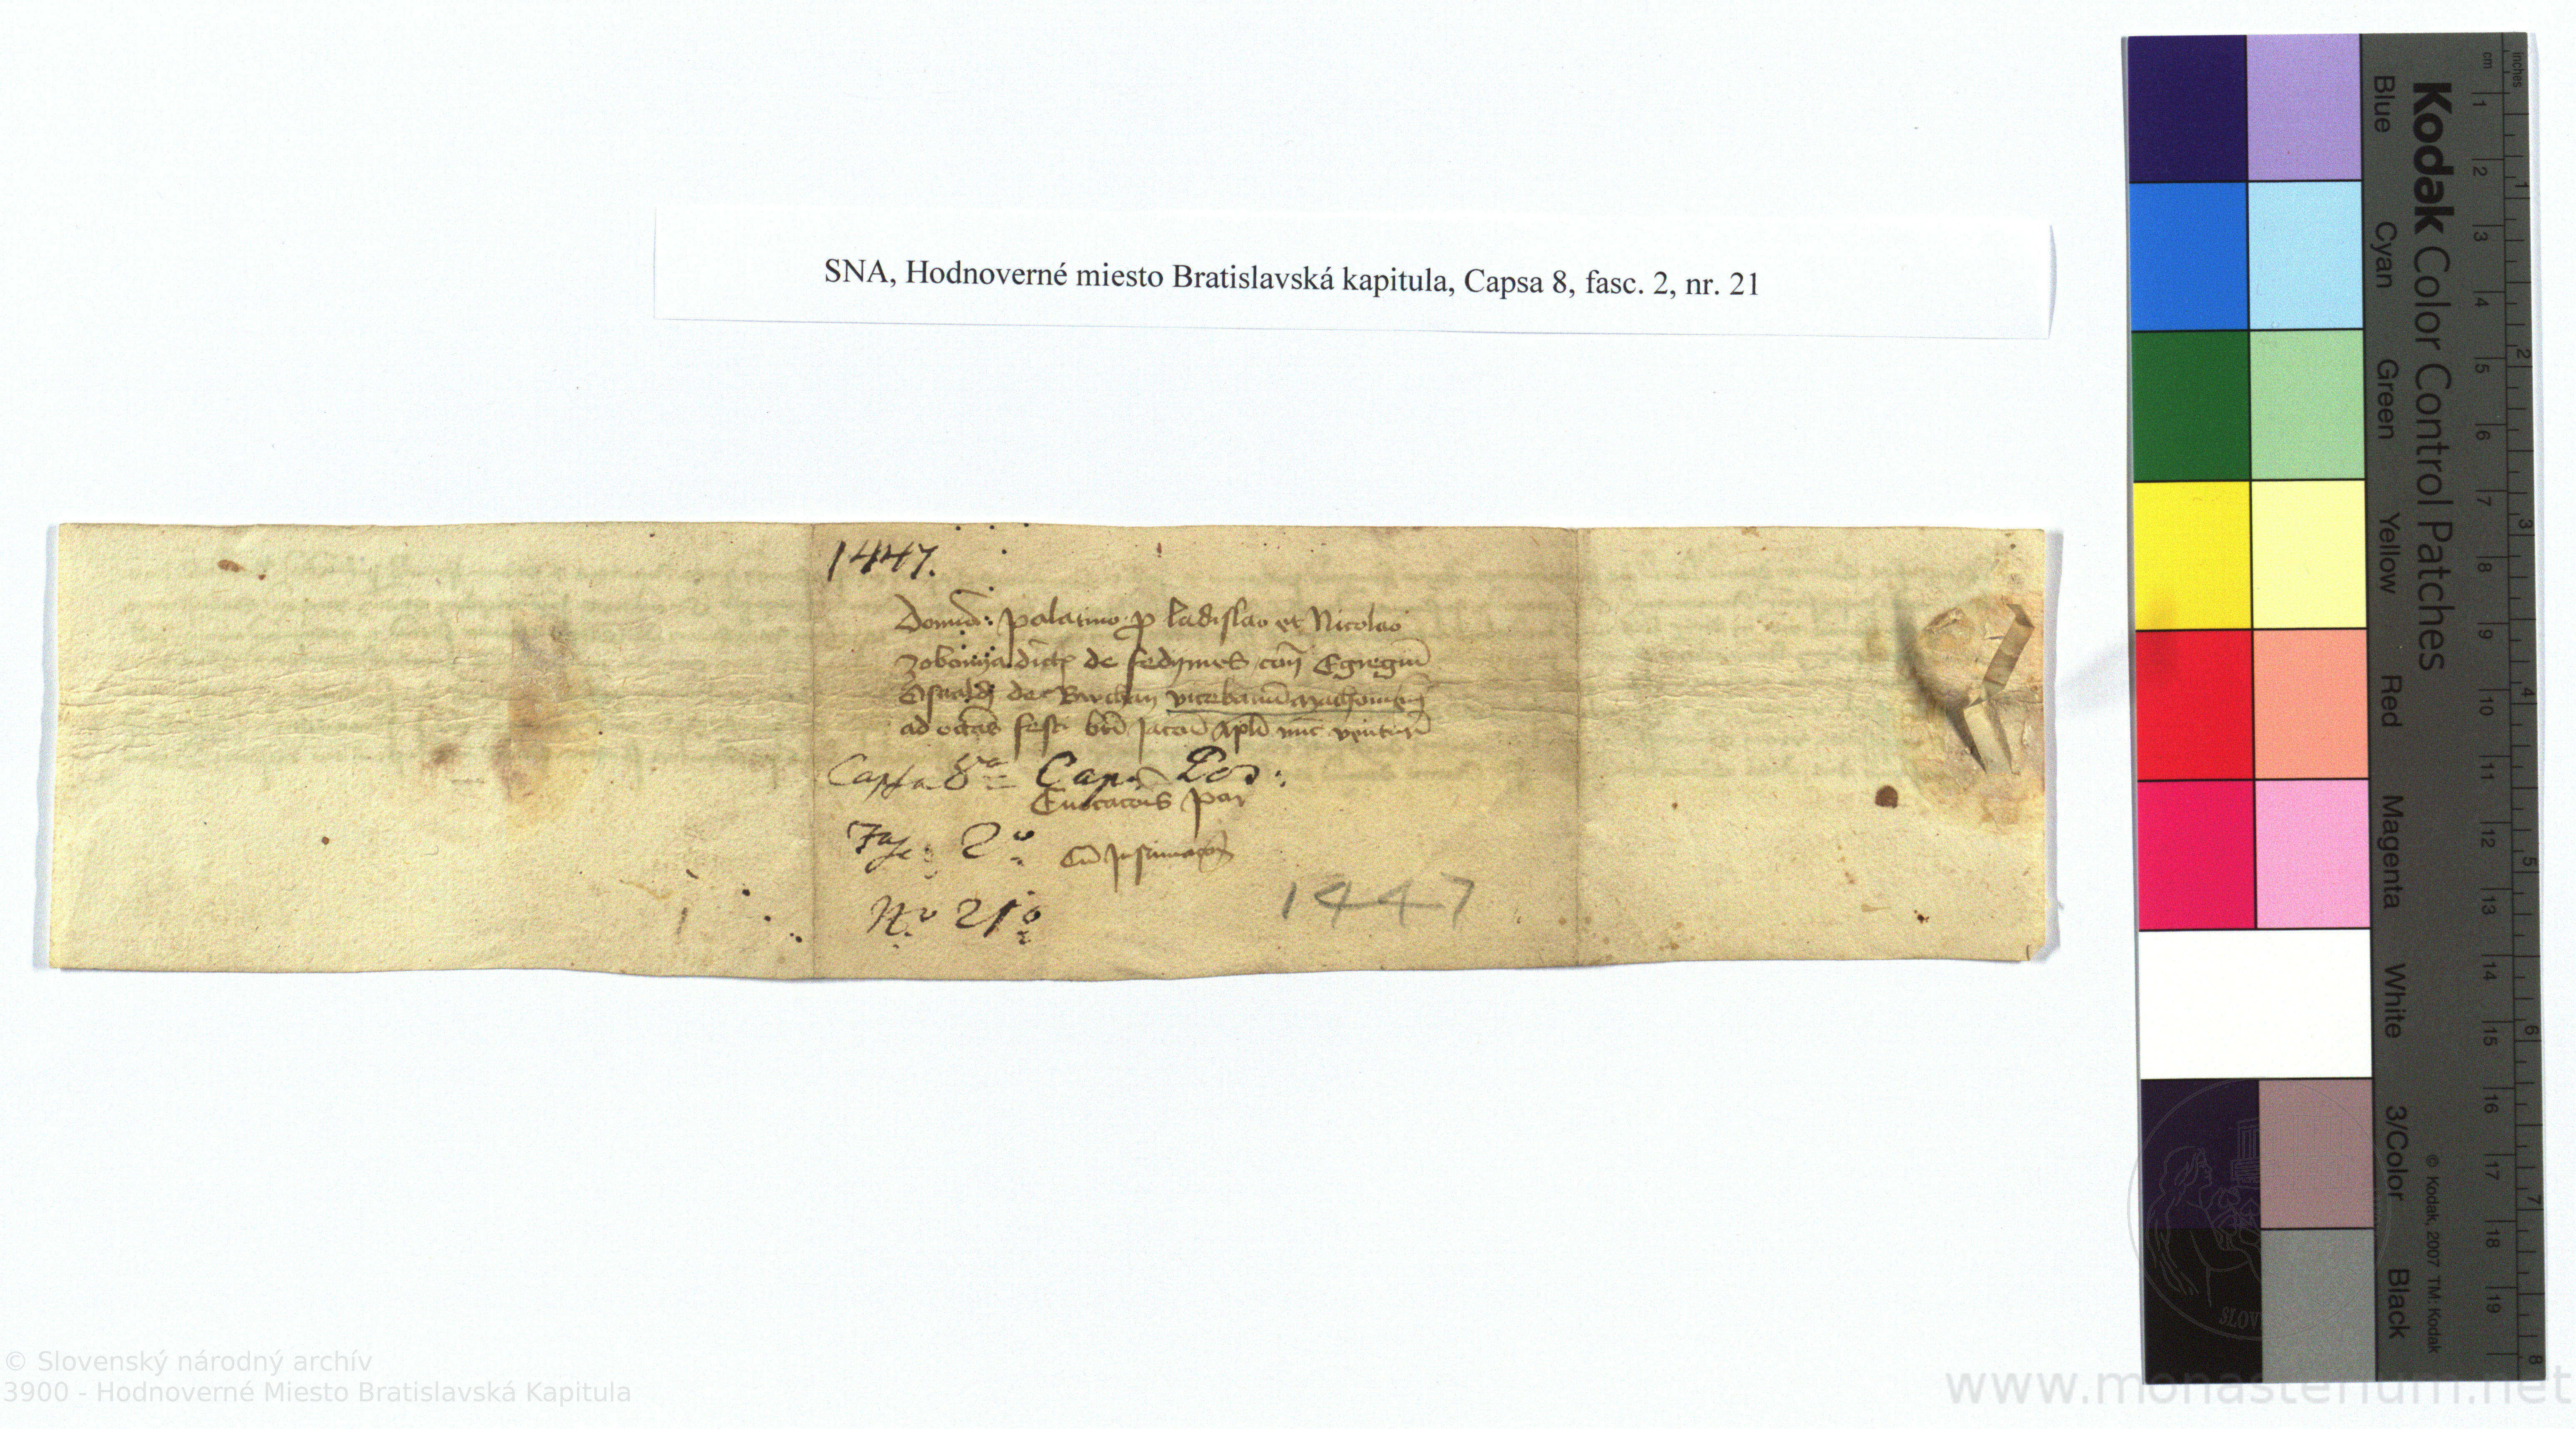 SNA, Hodnoverné miesto Bratislavská kapitula, Capsa 8, fasc. 2, nr. 21
1447.
Domino palatino p ladislao et Nicolao
Zobonya dict de fedymes con Egregiū
de Barchan vicebanū
ad octās festi bti Jacobi Apli nūc ventur
Capsa 8va
Euocacōis par
Fasc: 2o
Cū
No 21o
1447
Kodak Color Control Patches
Blue Cyan Green Yellow Red Magenta White 3/Color Black
© Kodak, 2007 TM: Kodak
inches 1 2 3 4 5 6 7 8
cm 1 2 3 4 5 6 7 8 9 10 11 12 13 14 15 16 17 18 19
© Slovenský národný archív
3900 - Hodnoverné Miesto Bratislavská Kapitula
www.monasterium.net